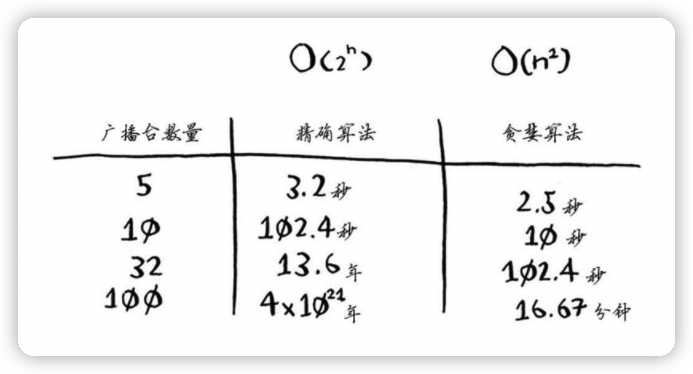 O(2ⁿ) O(n²)
广播台数量 精确算法 贪婪算法
5 3.2秒 2.5秒
10 102.4秒 10秒
32 13.6年 102.4秒
100 4×10²¹年 16.67分钟